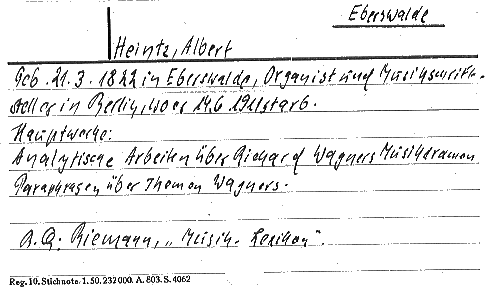 Eberswalde
Heintz, Albert
Geb. 21.3.1822 in Eberswalde, Organist und Musikschrift-
steller in Berlin, wo er 14.6 1911 starb.
Hauptwerke:
Analytische Arbeiten über Richard Wagners Musikdramen
Paraphrasen über Themen Wagners.
A.Q: Riemann, „Musik-Lexikon“.
Reg. 10. Stichnote. 1. 50. 232000. A. 803. S. 4062